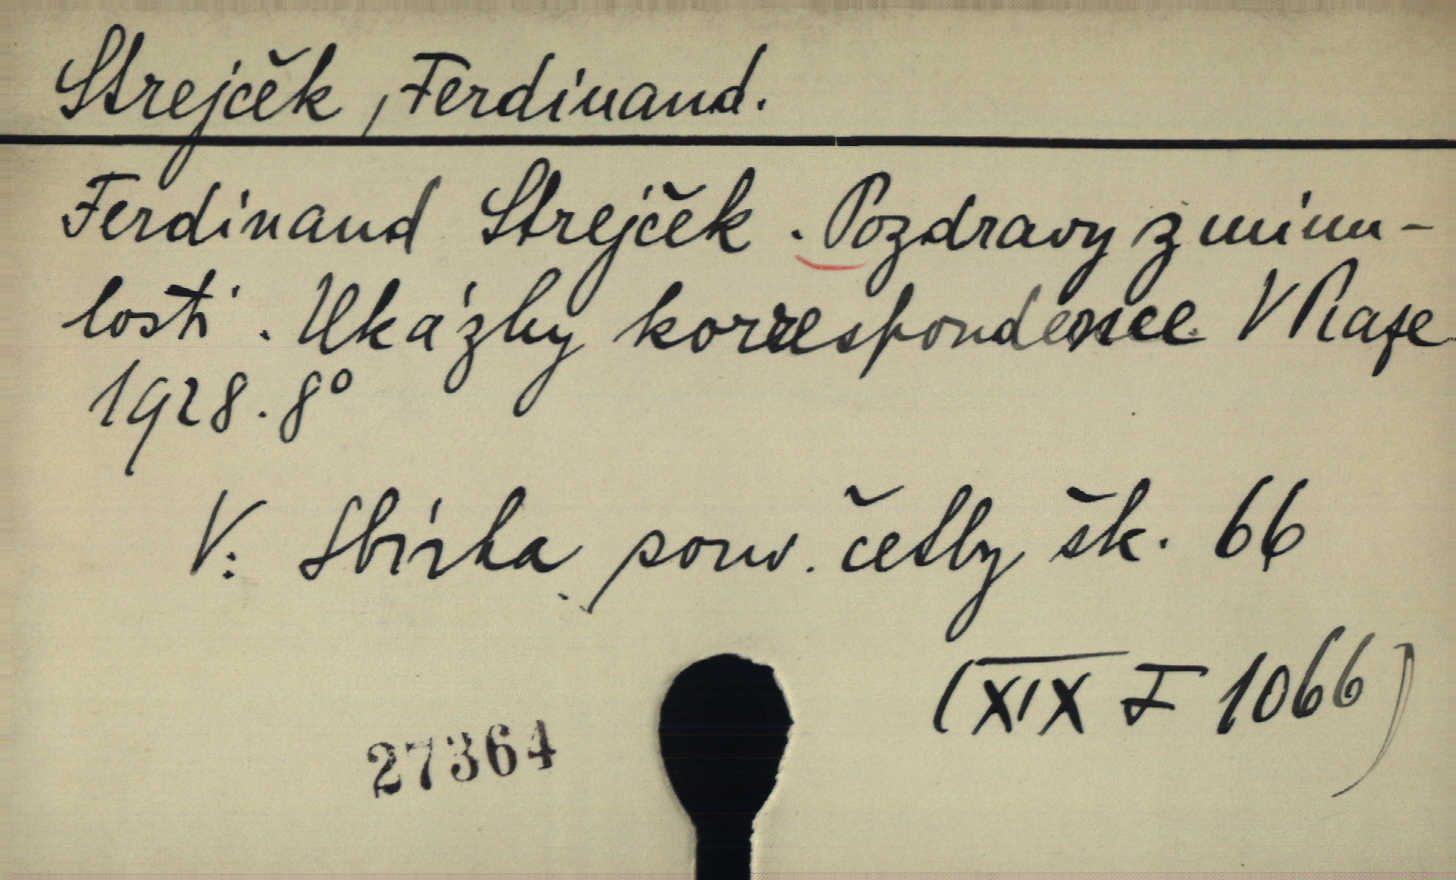 Strejček, Ferdinand.
Ferdinand Strejček. Pozdravy z minu-
losti. Ukázky korrespondence V Praze
1928. 8°
V: Sbírka pouč. četby šk. 66
(XIX F 1066)
27364